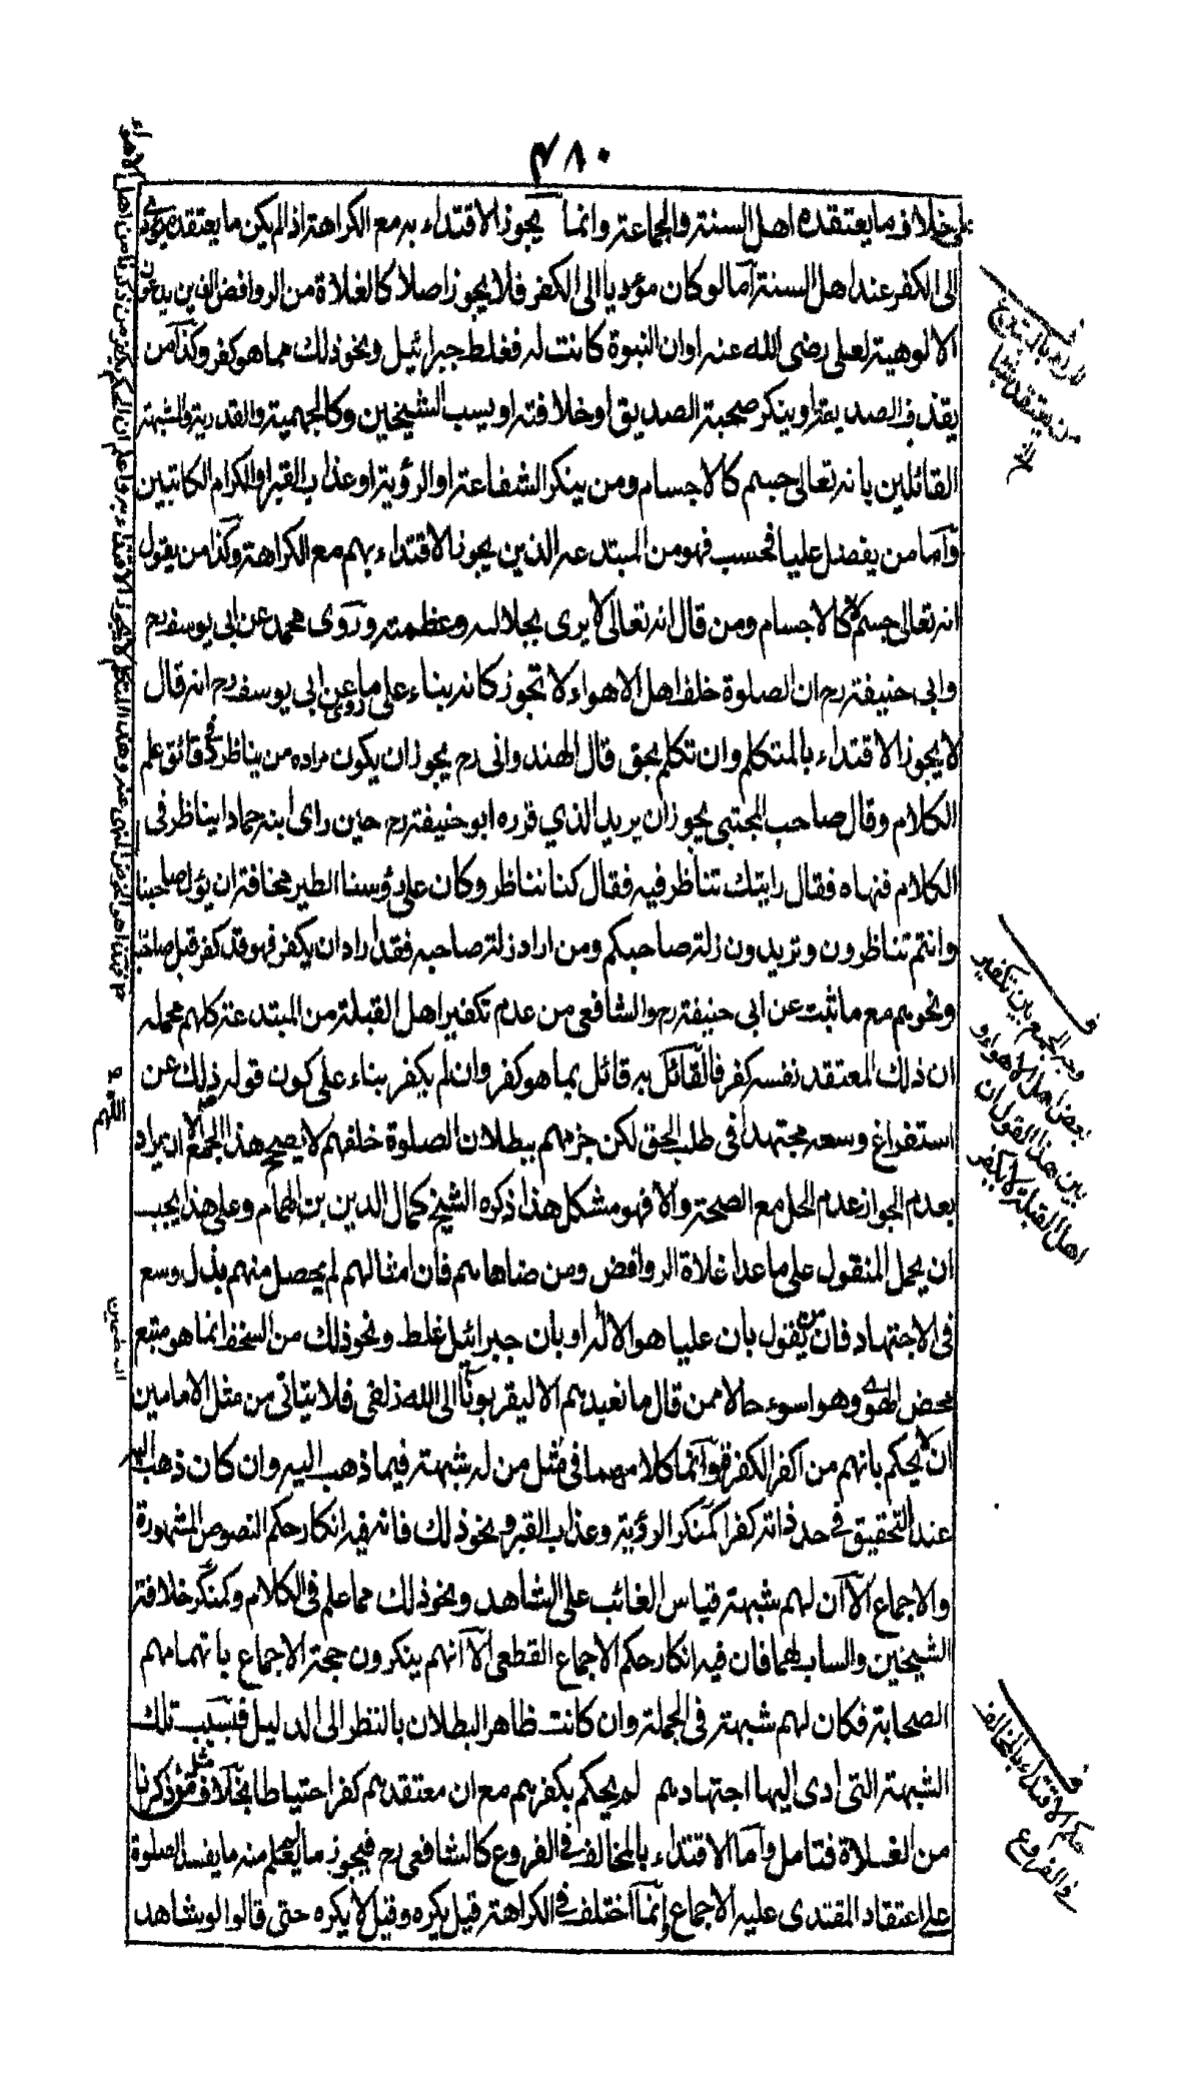 ٤٨٠
على خلاف ما يعتقده اهل السنة والجماعة وانما يجوز الاقتداء به مع الكراهة اذا لم يكن ما يعتقده يؤدى
الى الكفر عند اهل السنة اما لو كان مؤديا الى الكفر فلا يجوز اصلا كالغلاة من الروافض الذين يدعون
الالوهية لعلى رضى الله عنه او ان النبوة كانت له فغلط جبرائيل ونحو ذلك مما هو كفر وكذا من
يقذف الصديقة او ينكر صحبة الصديق او خلافته او يسب الشيخين وكالجهمية والقدرية والمشبهة
القائلين بانه تعالى جسم كالاجسام ومن ينكر الشفاعة او الرؤية او عذاب القبر او الكرام الكاتبين
واما من يفضل عليا فحسب فهو من المبتدعة الذين يجوز الاقتداء بهم مع الكراهة وكذا من يقول
انه تعالى جسم لا كالاجسام ومن قال انه تعالى لا يرى بجلاله وعظمته وروى محمد عن ابى يوسف رح
وابى حنيفة رح ان الصلوة خلف اهل الاهواء لا تجوز كانه بناء على ما روى عن ابى يوسف رح انه قال
لا يجوز الاقتداء بالمتكلم وان تكلم بحق قال الهندوانى رح يجوز ان يكون مراده من يناظر فى دقائق علم
الكلام وقال صاحب المجتبى يجوز ان يريد الذي قرره ابو حنيفة رح حين راى ابنه حمادا يناظر فى
الكلام فنهاه فقال رايتك تناظر فيه فقال كنا نناظر وكان على رؤسنا الطير مخافة ان يزل صاحبنا
وانتم تناظرون وتريدون زلة صاحبكم ومن اراد زلة صاحبه فقد اراد ان يكفر فهو قد كفر قبل صاحبه
ونحوهم مع ما ثبت عن ابى حنيفة رح والشافعى من عدم تكفير اهل القبلة من المبتدعة كلهم محمله
ان ذلك المعتقد نفسه كفر فالقائل به قائل بما هو كفر وان لم يكفر بناء على كون قوله ذلك عن
استفراغ وسعه مجتهدا فى طلب الحق لكن جزمهم ببطلان الصلوة خلفهم لا يصحح هذا الجمع اللهم الا ان يراد
بعدم الجواز عدم الحل مع الصحة والا فهو مشكل هذا ذكره الشيخ كمال الدين بن الهمام وعلى هذا يجب
ان يحمل المنقول على ما عدا غلاة الروافض ومن ضاهاهم فان امثالهم لم يحصل منهم بذل وسع
فى الاجتهاد فان من يقول بان عليا هو الاله او بان جبرائيل غلط ونحو ذلك من السخف انما هو متبع
محض الهوى وهو اسوء حالا ممن قال ما نعبدهم الا ليقربونا الى الله زلفى فلا يتاتى من مثل الامامين
ان لا يحكم بانهم من اكفر الكفرة وانما كلامهما فى مثل من له شبهة فيما ذهب اليه وان كان ما ذهب اليه
عند التحقيق فى حد ذاته كفرا كمنكر الرؤية وعذاب القبر ونحو ذلك فانه فيه انكار حكم النصوص المشهورة
والاجماع الا ان لهم شبهة قياس الغائب على الشاهد ونحو ذلك مما علم فى الكلام وكمنكر خلافة
الشيخين والساب لهما فان فيه انكار حكم الاجماع القطعى الا انهم ينكرون حجة الاجماع باتهامهم
الصحابة فكان لهم شبهة فى الجملة وان كانت ظاهر البطلان بالنظر الى الدليل فبسبب تلك
الشبهة التى ادى اليها اجتهادهم لم يحكم بكفرهم مع ان معتقدهم كفر احتياطا بخلاف مثل من ذكرنا
من الغلاة فتامل واما الاقتداء بالمخالف فى الفروع كالشافعى رح فيجوز ما لم يعلم منه ما يفسد الصلوة
على اعتقاد المقتدى عليه الاجماع وانما اختلف فى الكراهة قيل يكره وقيل لا يكره حتى قالوا لو شاهد
من يعتقد شيئا
وجه الجمع بين تكفير
بعض اهل الاهواء و
بين هذا القول ان
اهل القبلة لا يكفر
حكم الاقتداء بالمخالف
فى الفروع
اعلم ان الحكم بكفر من ذكرنا من اهل الاهواء